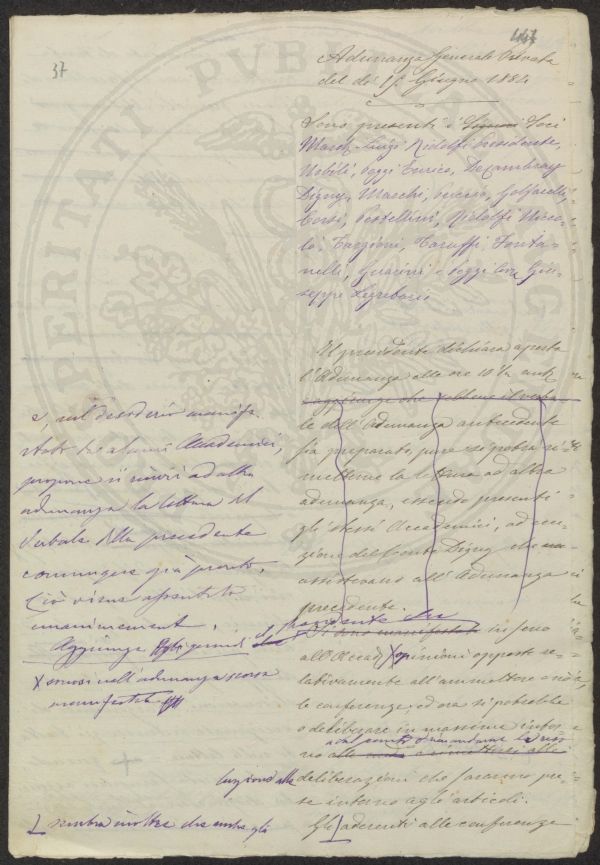 37
447
Adunanza Generale Privata
del dì 1º Giugno 1884
Sono presenti i Signori Soci
March. Luigi Ridolfi Presidente,
Nobili, Poggi Enrico, De Cambray
Digny, Marchi,
Corsi, Pestellini, Ridolfi Nicco-
lò, Targioni, Taruffi, Fonta-
nelli, Guarini e Poggi Cav. Giu-
seppe Segretario
Il presidente dichiara aperta
l'Adunanza alle ore 10 ½ ant.
e aggiunge che sebbene il verba-
le dell'Adunanza antecedente
sia preparato, pure si potrà ri-
mettere la lettura ad altra
adunanza, essendo presenti
gli stessi Accademici, ad ecce-
zione del Conte Digny che
assisterono all'Adunanza
precedente.
e, sul desiderio manife
stato da alcuni Accademici,
propone si rinvii ad altra
adunanza la lettura del
Verbale della precedente
comunque già pronto.
Ciò viene assentito
unanimemente.
Aggiunge quindi il presidente che
X emesse nell'adunanza scorsa
manifestate
Si sono manifestate in seno
all'Accad. X opinioni opposte re-
lativamente all'ammettere o no,
le conferenze ed ora si potrebbe
o deliberare in massima intor-
no
luzione alle
deliberazioni che saranno pre-
se intorno agli articoli.
Gli aderenti alle conferenze
sembra inoltre che anche gli